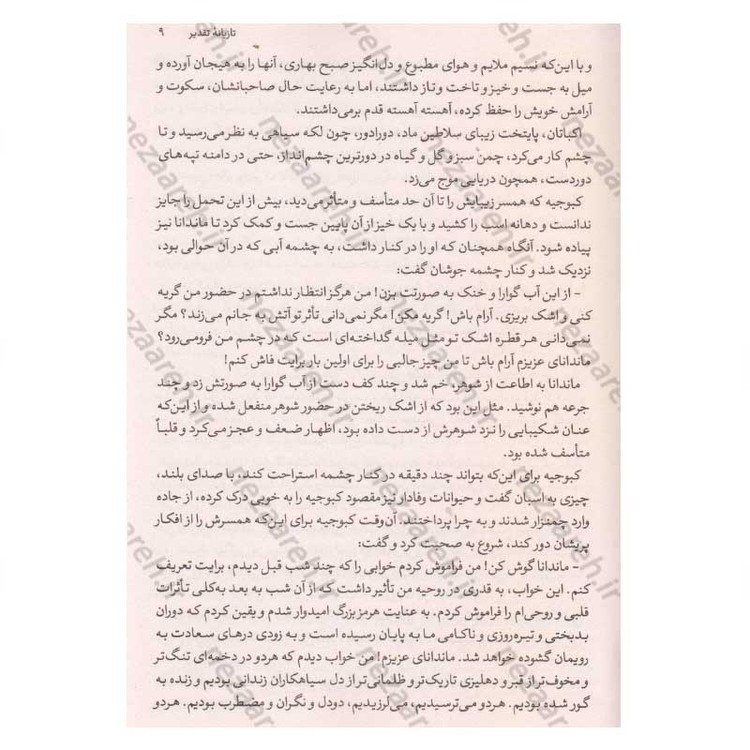 تازیانهٔ تقدیر ۹
و با این‌که نسیم ملایم و هوای مطبوع و دل‌انگیز صبح بهاری، آنها را به هیجان آورده و
میل به جست و خیز و تاخت و تاز داشتند، اما به رعایت حال صاحبانشان، سکوت و
آرامش خویش را حفظ کرده، آهسته آهسته قدم برمی‌داشتند.
اکباتان، پایتخت زیبای سلاطین ماد، دورادور، چون لکه سیاهی به نظر می‌رسید و تا
چشم کار می‌کرد، چمن سبز و گل و گیاه در دورترین چشم‌انداز، حتی در دامنه تپه‌های
دوردست، همچون دریایی موج می‌زد.
کبوجیه که همسر زیبایش را تا آن حد متأسف و متأثر می‌دید، بیش از این تحمل را جایز
ندانست و دهانه اسب را کشید و با یک خیز از آن پایین جست و کمک کرد تا ماندانا نیز
پیاده شود. آنگاه همچنان که او را در کنار داشت، به چشمه آبی که در آن حوالی بود،
نزدیک شد و کنار چشمه جوشان گفت:
- از این آب گوارا و خنک به صورتت بزن! من هرگز انتظار نداشتم در حضور من گریه
کنی و اشک بریزی. آرام باش! گریه مکن! مگر نمی‌دانی تأثر تو آتش به جانم می‌زند؟ مگر
نمی‌دانی هر قطره اشک تو مثل میله گداخته‌ای است که در چشم من فرو می‌رود؟
ماندانای عزیزم آرام باش تا من چیز جالبی را برای اولین بار برایت فاش کنم!
ماندانا به اطاعت از شوهر، خم شد و چند کف دست از آب گوارا به صورتش زد و چند
جرعه هم نوشید. مثل این بود که از اشک ریختن در حضور شوهر منفعل شده و از این‌که
عنان شکیبایی را نزد شوهرش از دست داده بود، اظهار ضعف و عجز می‌کرد و قلباً
متأسف شده بود.
کبوجیه برای این‌که بتواند چند دقیقه در کنار چشمه استراحت کند، با صدای بلند،
چیزی به اسبان گفت و حیوانات وفادار نیز مقصود کبوجیه را به خوبی درک کرده، از جاده
وارد چمنزار شدند و به چرا پرداختند. آن‌وقت کبوجیه برای این‌که همسرش را از افکار
پریشان دور کند، شروع به صحبت کرد و گفت:
- ماندانا گوش کن! من فراموش کردم خوابی را که چند شب قبل دیدم، برایت تعریف
کنم. این خواب، به قدری در روحیه من تأثیر داشت که از آن شب به بعد به‌کلی تأثرات
قلبی و روحی‌ام را فراموش کردم. به عنایت هرمز بزرگ امیدوار شدم و یقین کردم که دوران
بدبختی و تیره‌روزی و ناکامی ما به پایان رسیده است و به زودی درهای سعادت به
رویمان گشوده خواهد شد. ماندانای عزیزم! من خواب دیدم که هردو در دخمه‌ای تنگ‌تر
و مخوف‌تر از قبر و دهلیزی تاریک‌تر و ظلمانی‌تر از دل سیاهکاران زندانی بودیم و زنده به
گور شده بودیم. هردو می‌ترسیدیم، می‌لرزیدیم، دودل و نگران و مضطرب بودیم. هردو
nezaareh.ir